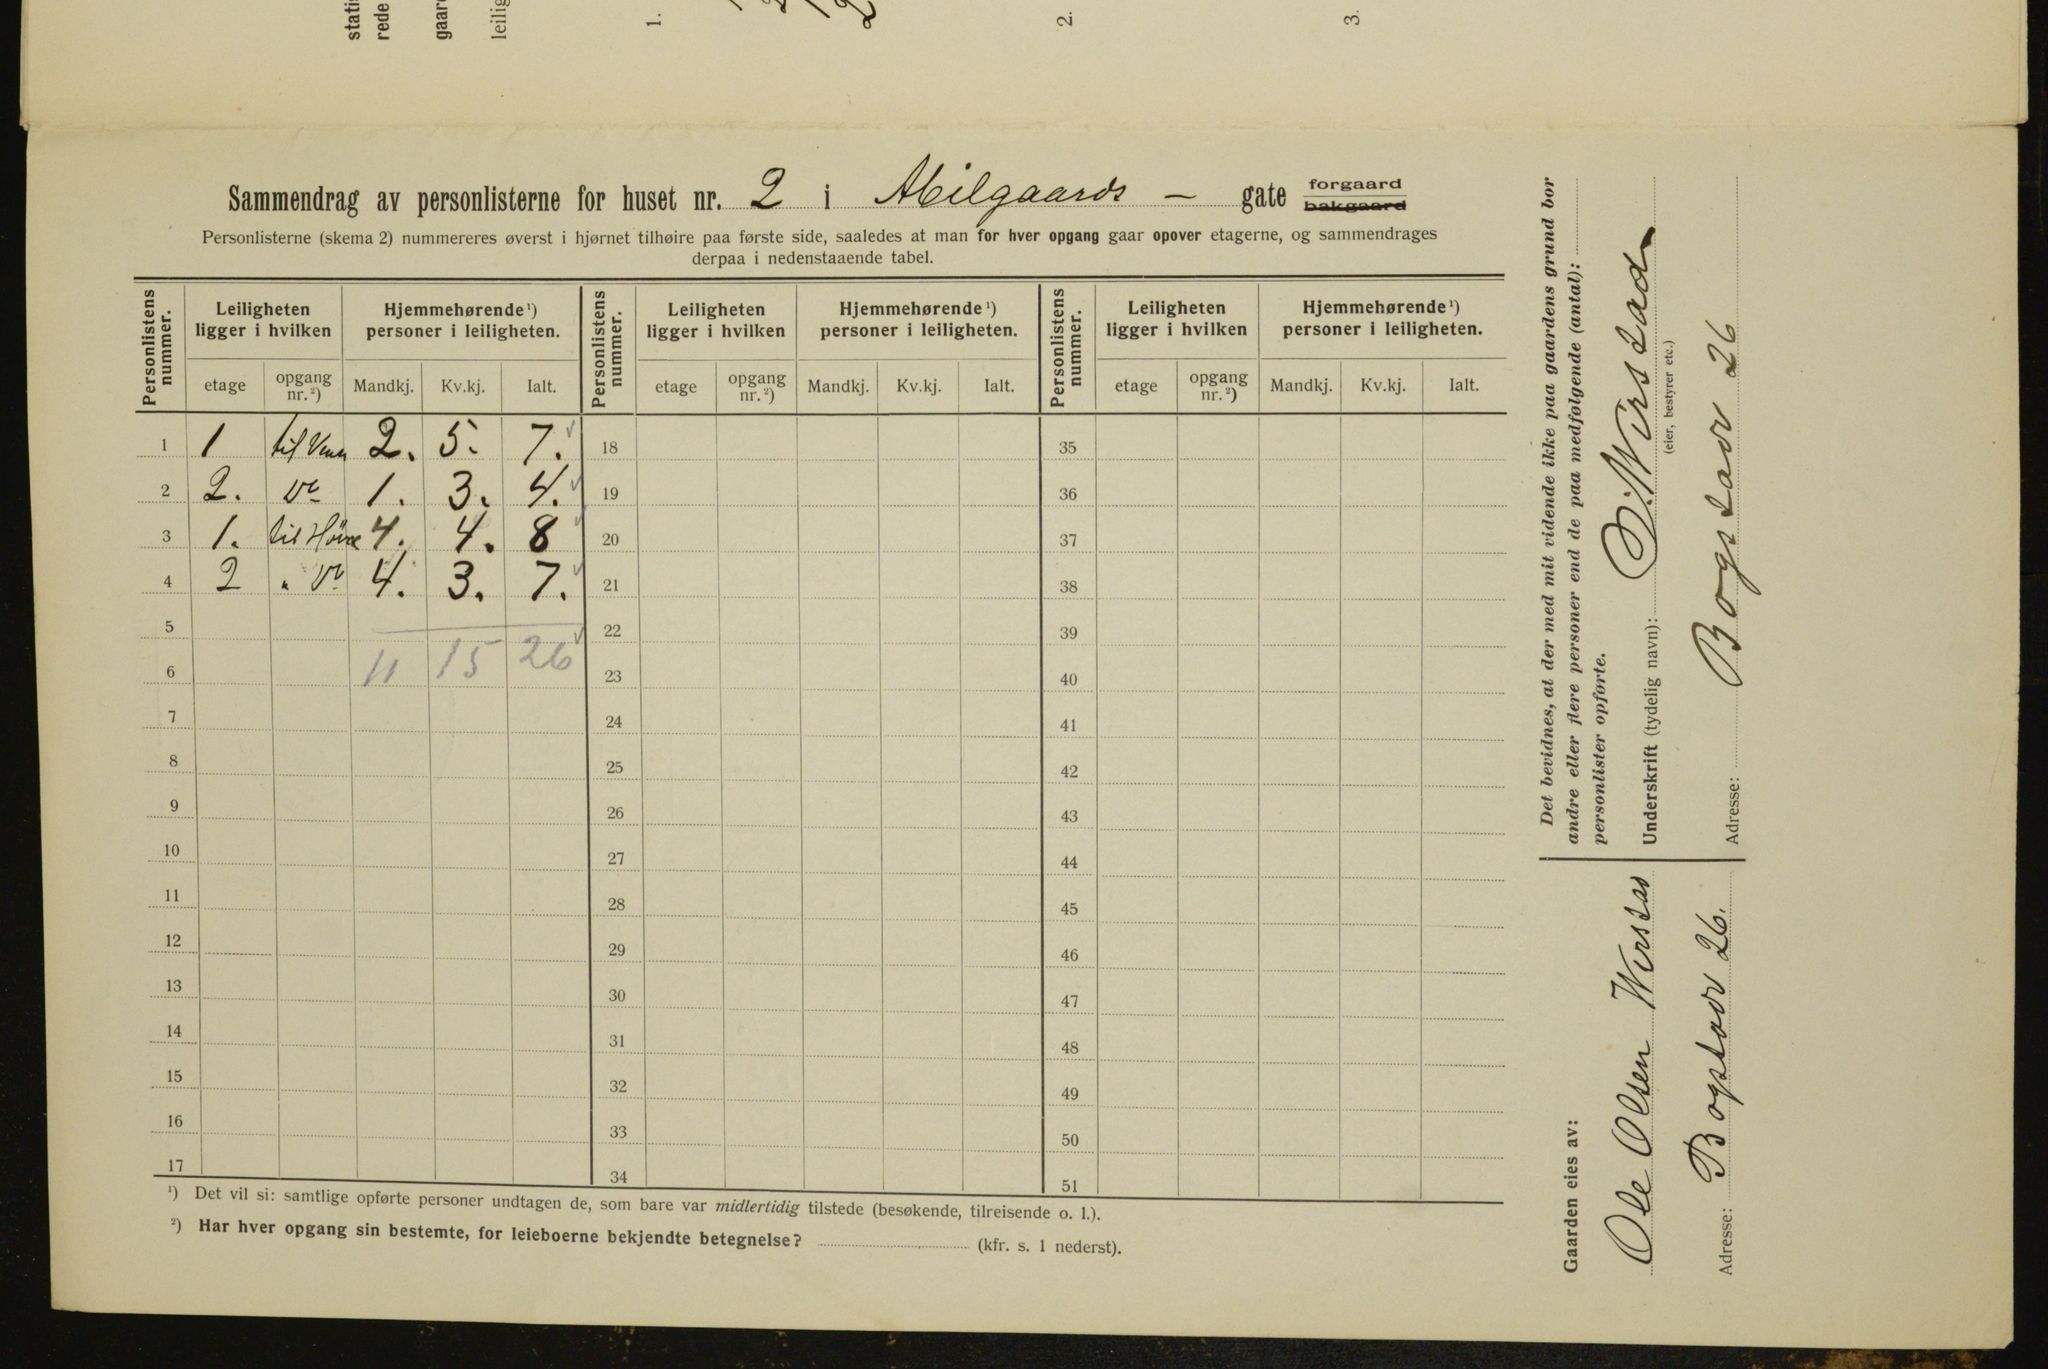 statis
rede
gaard
leilig
1.
2.
3.
Sammendrag av personlisterne for huset nr. 2 i Abilgaards – gate forgaard
bakgaard
Personlisterne (skema 2) nummereres øverst i hjørnet tilhøire paa første side, saaledes at man for hver opgang gaar opover etagerne, og sammendrages
derpaa i nedenstaaende tabel.
Personlistens nummer. Leiligheten ligger i hvilken Hjemmehørende ¹) personer i leiligheten. Personlistens nummer. Leiligheten ligger i hvilken Hjemmehørende ¹) personer i leiligheten. Personlistens nummer. Leiligheten ligger i hvilken Hjemmehørende ¹) personer i leiligheten.
etage opgang nr. ²) Mandkj. Kv.kj. Ialt. etage opgang nr. ²) Mandkj. Kv.kj. Ialt. etage opgang nr. ²) Mandkj. Kv.kj. Ialt.
1 1 til 2. 5. 7. ✓ 18 35
2 2. 1. 3. 4. ✓ 19 36
3 1. til 4. 4. 8 ✓ 20 37
4 2 " 4. 3. 7. ✓ 21 38
5 ✓ 22 39
6 11 15 26 23 40
7 24 41
8 25 42
9 26 43
10 27 44
11 28 45
12 29 46
13 30 47
14 31 48
15 32 49
16 33 50
17 34 51
¹) Det vil si: samtlige opførte personer undtagen de, som bare var midlertidig tilstede (besøkende, tilreisende o. l.).
²) Har hver opgang sin bestemte, for leieboerne bekjendte betegnelse? (kfr. s. 1 nederst).
Det bevidnes, at der med mit vidende ikke paa gaardens grund bor
andre eller flere personer end de paa medfølgende (antal):
personlister opførte.
Underskrift (tydelig navn): Wirstad
(eier, bestyrer etc.)
Adresse: Bogstadv 26
Gaarden eies av:
Ole Olsen Wirstad
Adresse: Bogstadv 26.